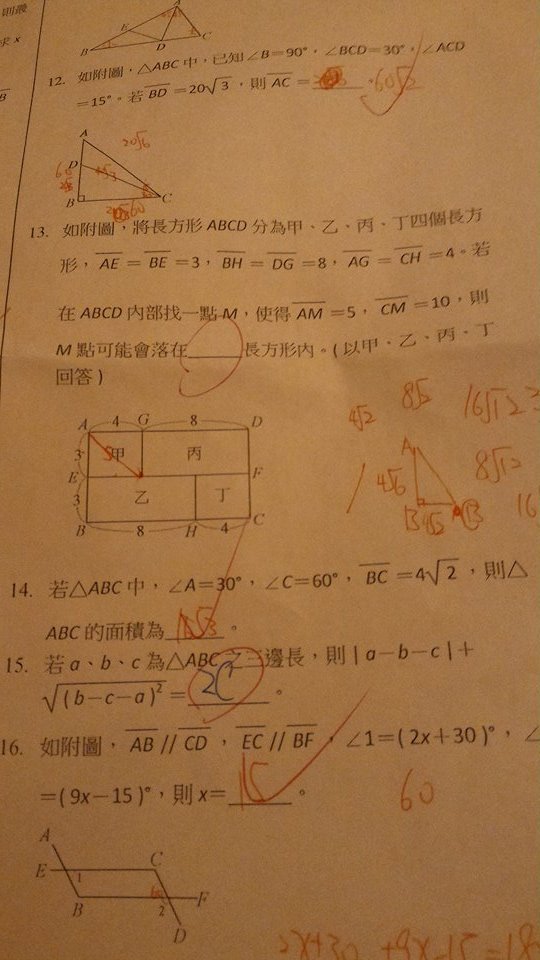 則最
求 x
B
A
E
B
D
C
12. 如附圖，△ABC 中，已知∠B=90°，∠BCD=30°，∠ACD
=15°。若 BD =20√3，則 AC = 60√2 。
A
20√6
D
60
B
60
C
13. 如附圖，將長方形 ABCD 分為甲、乙、丙、丁四個長方
形，AE = BE =3，BH = DG =8，AG = CH =4。若
在 ABCD 內部找一點 M，使得 AM =5，CM =10，則
M 點可能會落在______長方形內。(以甲、乙、丙、丁
回答)
A 4 G 8 D
3 5 甲 丙
E F
3 乙 丁
B 8 H 4 C
4√2 8√2 16√12
A
4√6 8√12
B 4√2 16
14. 若△ABC 中，∠A=30°，∠C=60°，BC =4√2，則△
ABC 的面積為 。
15. 若 a、b、c 為△ABC 之三邊長，則|a−b−c|+
√(b−c−a)² = 2C 。
16. 如附圖，AB // CD，EC // BF，∠1=(2x+30)°，∠
=(9x−15)°，則 x= 15 。
60
A
E 1 C
B 2 F
D
2x+30 +9x-15=18